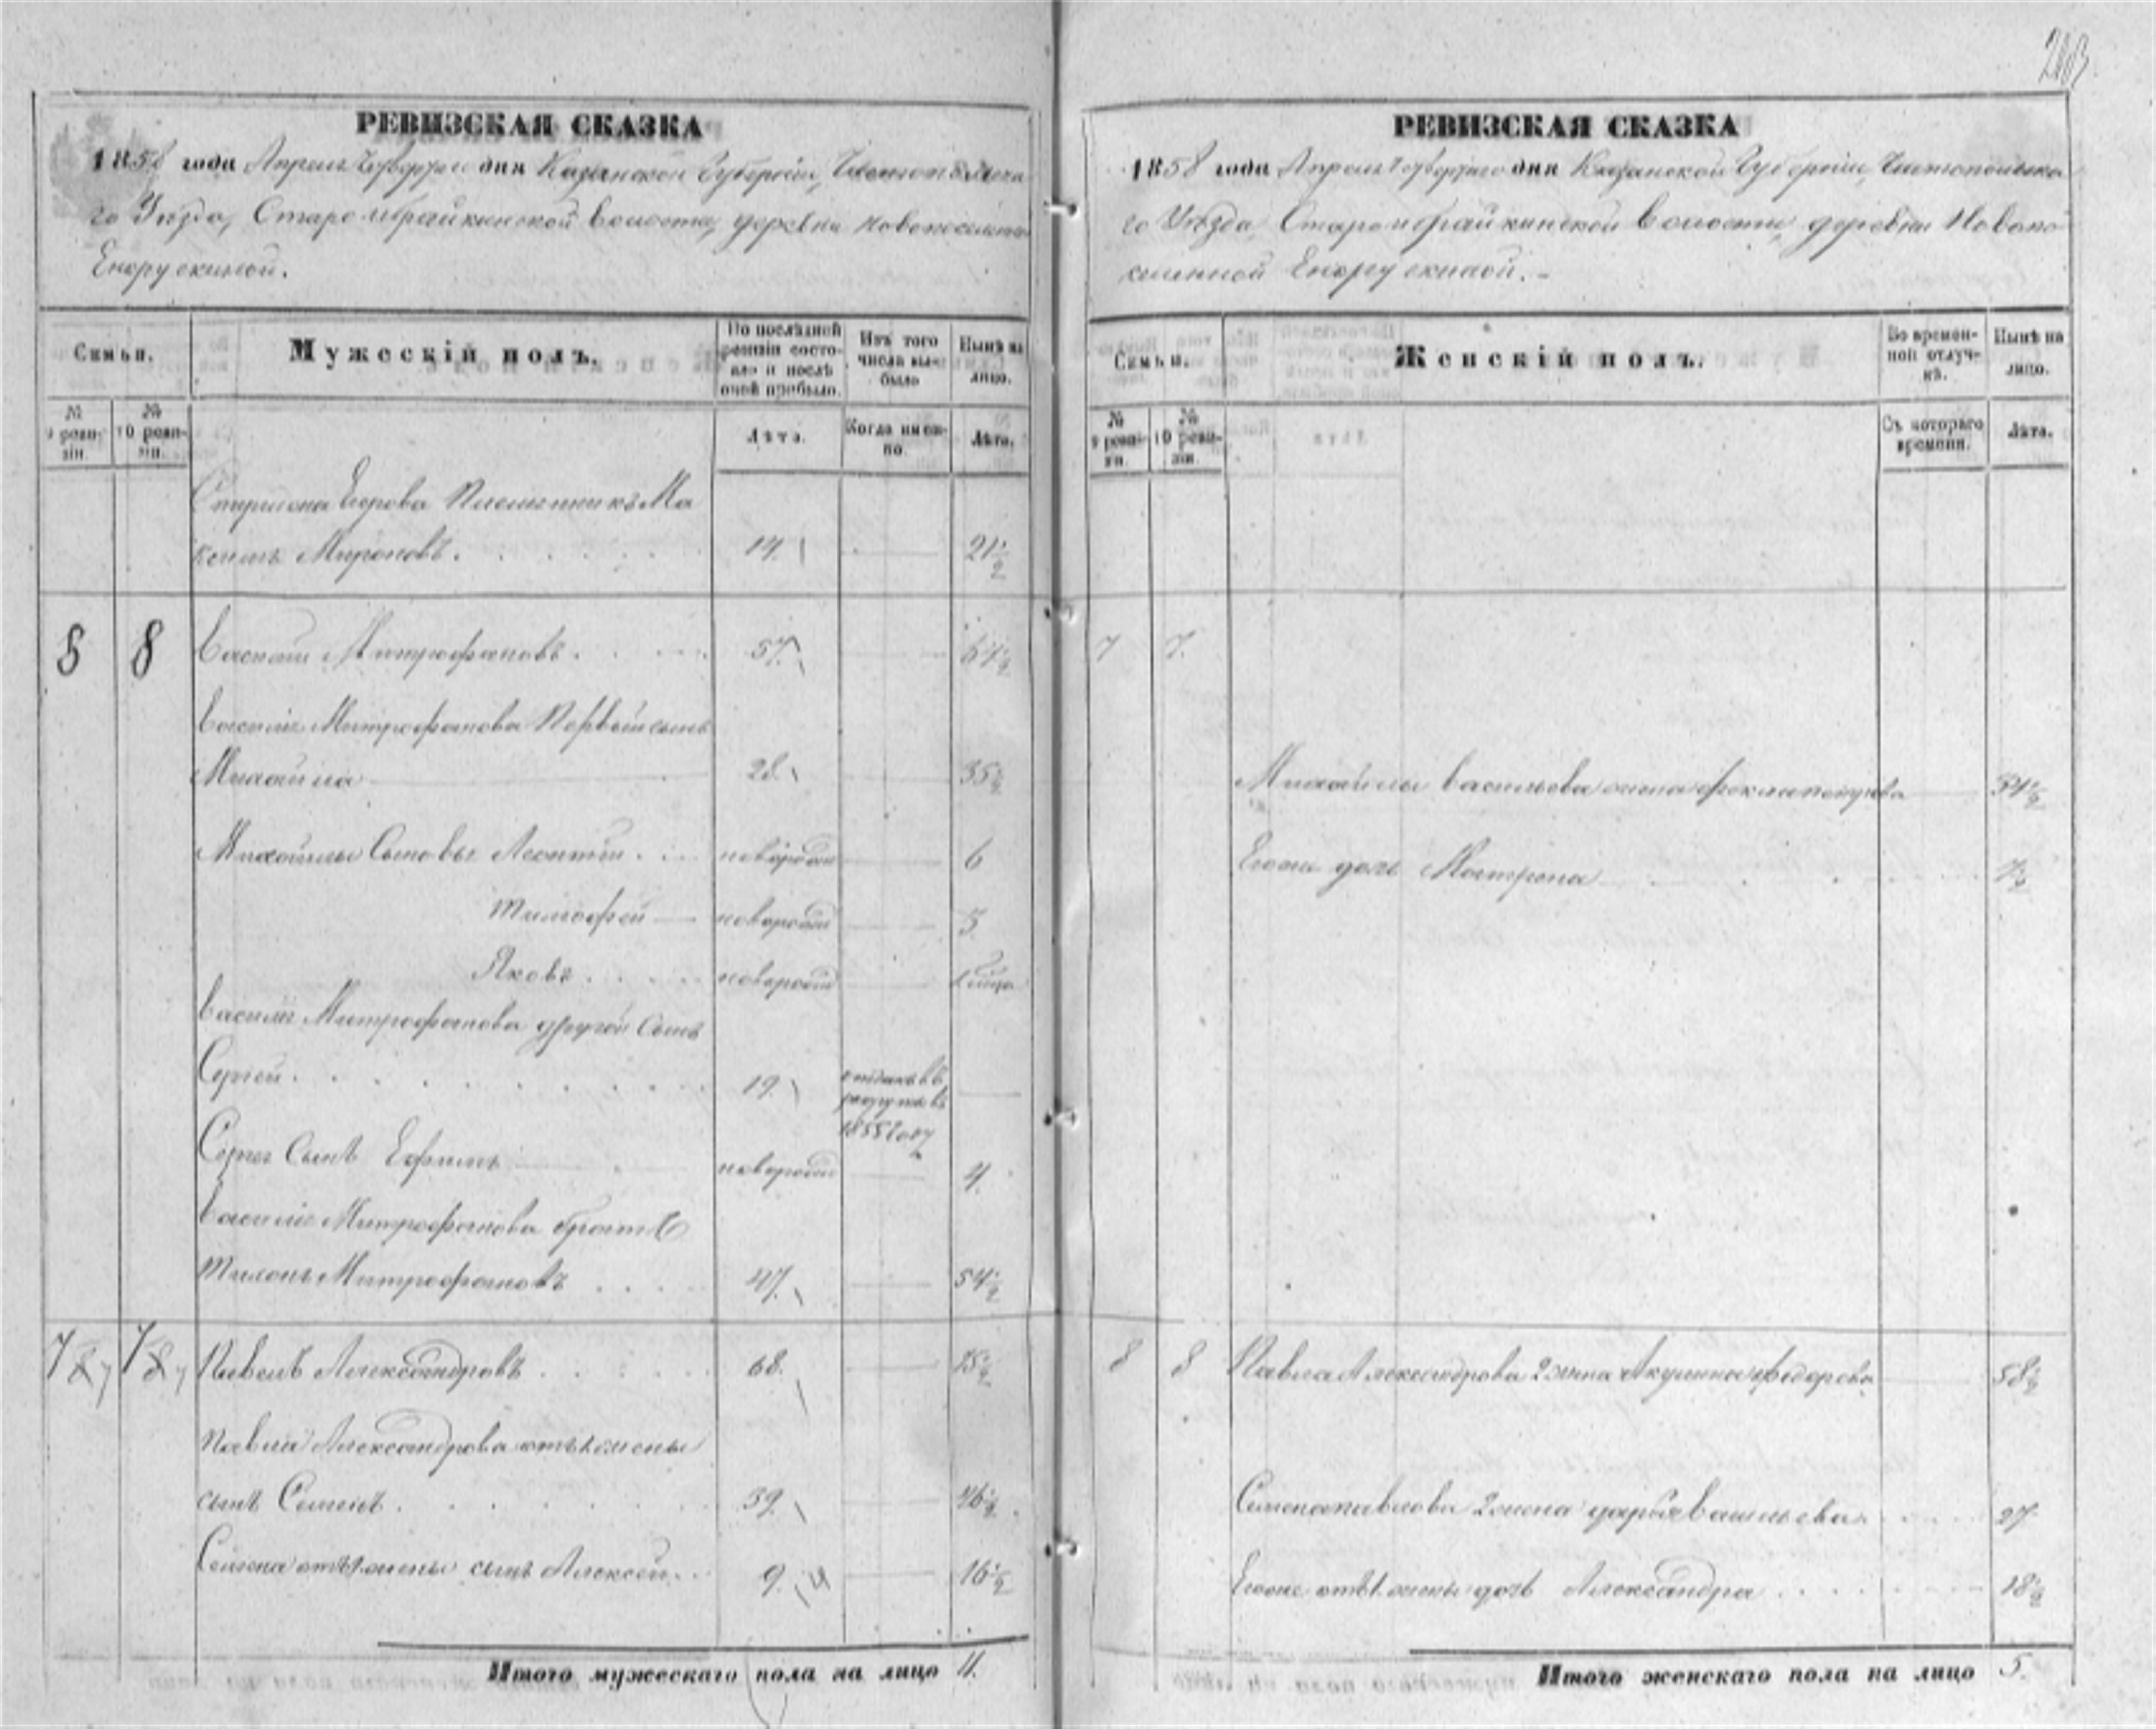 203
РЕВИЗСКАЯ СКАЗКА
1858 года Апреля Четвертаго дня Казанской Губернiи, Чистопольска
го Уѣзда, Староиброайкинской волости, деревни Новопоселенной
Енорускиной.
Семьи.
Мужескiй полъ.
По послѣдней ревизiи состояло и послѣ оной прибыло.
Изъ того числа выбыло
Нынѣ на лицо.
№ 9 ревизiи.
№ 10 ревизiи.
Лѣта.
Когда именно.
Лѣта.
Спиридона Егорова Племянникъ Ма
ксимъ Мироновъ. 14. 21½
8 8 Василiй Митрофановъ. 57. 64½
Василiя Митрофанова Первый сынъ
Михайла 28. 35½
Михайлы Сыновья Леонтiй. новорож 6
Тимофей новорож 3
Яковъ новорож
Василiя Митрофанова другой Сынъ
Сергей. 19. отданъ въ рекруты въ 1855 году
Сергея Сынъ Ефимъ новорож 4.
Василiя Митрофанова братъ
Тихонъ Митрофановъ 47. 54½
7 7 Павелъ Александровъ 68. 75½
Павла Александрова отъ 1 жены
сынъ Семенъ. 39. 46½
Семена отъ 1 жены сынъ Алексей. 9. 16½
Итого мужескаго пола на лицо 11.
РЕВИЗСКАЯ СКАЗКА
1858 года Апреля Четвертаго дня Казанской Губернiи, Чистопольска
го Уѣзда, Староиброайкинской волости, деревни Новопо
селенной Енорускиной.
Семьи.
Женскiй полъ.
Во временной отлучкѣ.
Нынѣ на лицо.
№ 9 ревизiи.
№ 10 ревизiи.
Съ котораго времени.
Лѣта.
7 7.
Михайлы Васильева жена Фекла Петрова 34½
Егоже дочь Матрена
8 8 Павла Александрова 2 жена Акулина Федорова 58½
Семена Павлова 2 жена Дарья Васильева. 27
Егоже отъ 1 жены дочь Александра 18½
Итого женскаго пола на лицо 5.